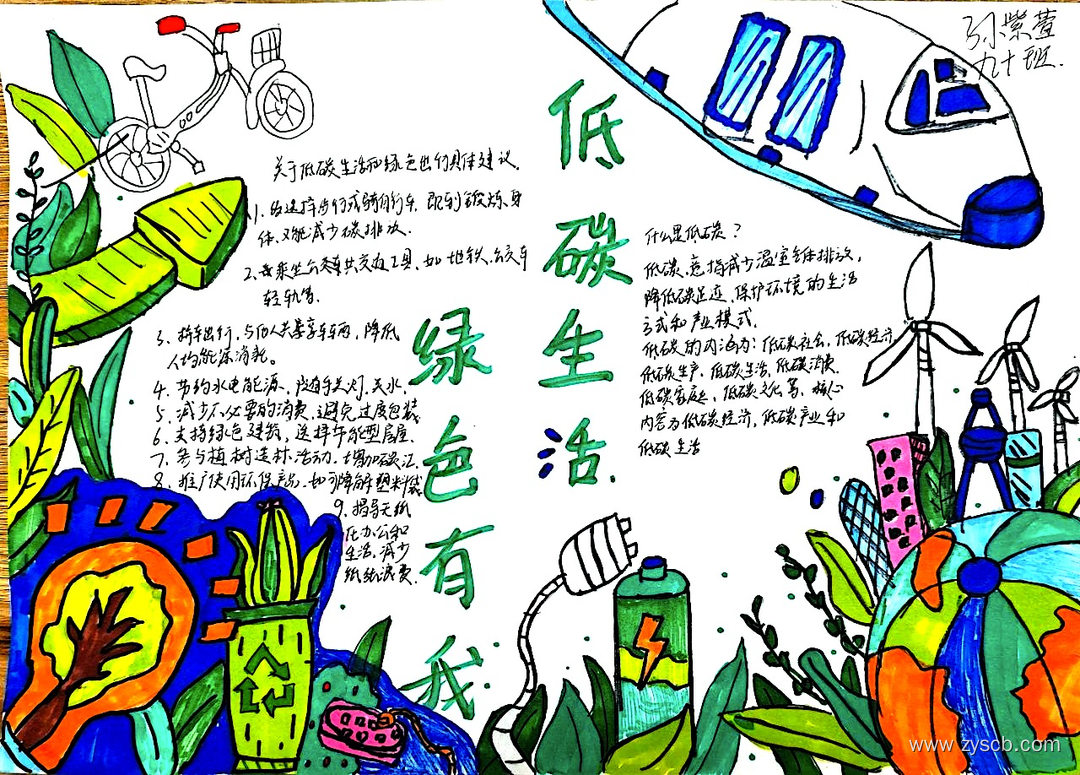 孙紫萱
九十班.
低碳生活.
绿色有我
关于低碳生活和绿色出行具体建议.
1. 选择步行或骑自行车, 即到锻炼身
体、又能减少碳排放.
2. 乘坐公共交通工具, 如地铁、公交车
轻轨等.
3. 拼车出行, 与他人共享车辆, 降低
人均能源消耗。
4. 节约水电能源、随手关灯、关水.
5. 减少不必要的消费、避免过度包装
6. 支持绿色建筑, 选择节能型房屋.
7. 参与植树造林活动. 增加碳汇.
8. 推广使用环保产品, 如可降解塑料袋
9. 倡导无纸
化办公和
生活, 减少
纸浪费.
什么是低碳?
低碳, 意指减少温室气体排放,
降低碳足迹, 保护环境的生活
方式和产业模式.
低碳的内涵为: 低碳社会, 低碳经济,
低碳生产, 低碳生活, 低碳消费,
低碳家庭、低碳文化等, 核心
内容为低碳经济, 低碳产业和
低碳生活
www.zyscb.com